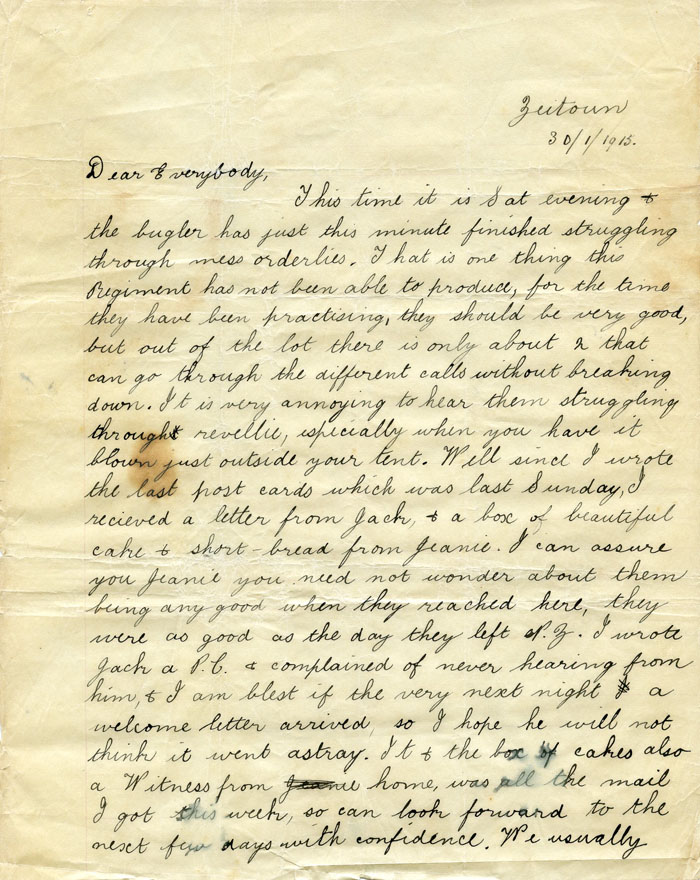 Zeitoun
30/1/1915.
Dear Everybody,
This time it is Sat evening &
the bugler has just this minute finished struggling
through mess orderlies. That is one thing this
Regiment has not been able to produce, for the time
they have been practising, they should be very good,
but out of the lot there is only about 2 that
can go through the different calls without breaking
down. It is very annoying to hear them struggling
through revellie, especially when you have it
blown just outside your tent. Well since I wrote
the last post cards which was last Sunday, I
recieved a letter from Jack, & a box of beautiful
cake & short-bread from Jeanie. I can assure
you Jeanie you need not wonder about them
being any good when they reached here, they
were as good as the day they left N.Z. I wrote
Jack a P.C. & complained of never hearing from
him, & I am blest if the very next night a
welcome letter arrived, so I hope he will not
think it went astray. It & the box of cakes also
a Witness from Jeanie home, was all the mail
I got this week, so can look forward to the
next few days with confidence. We usually